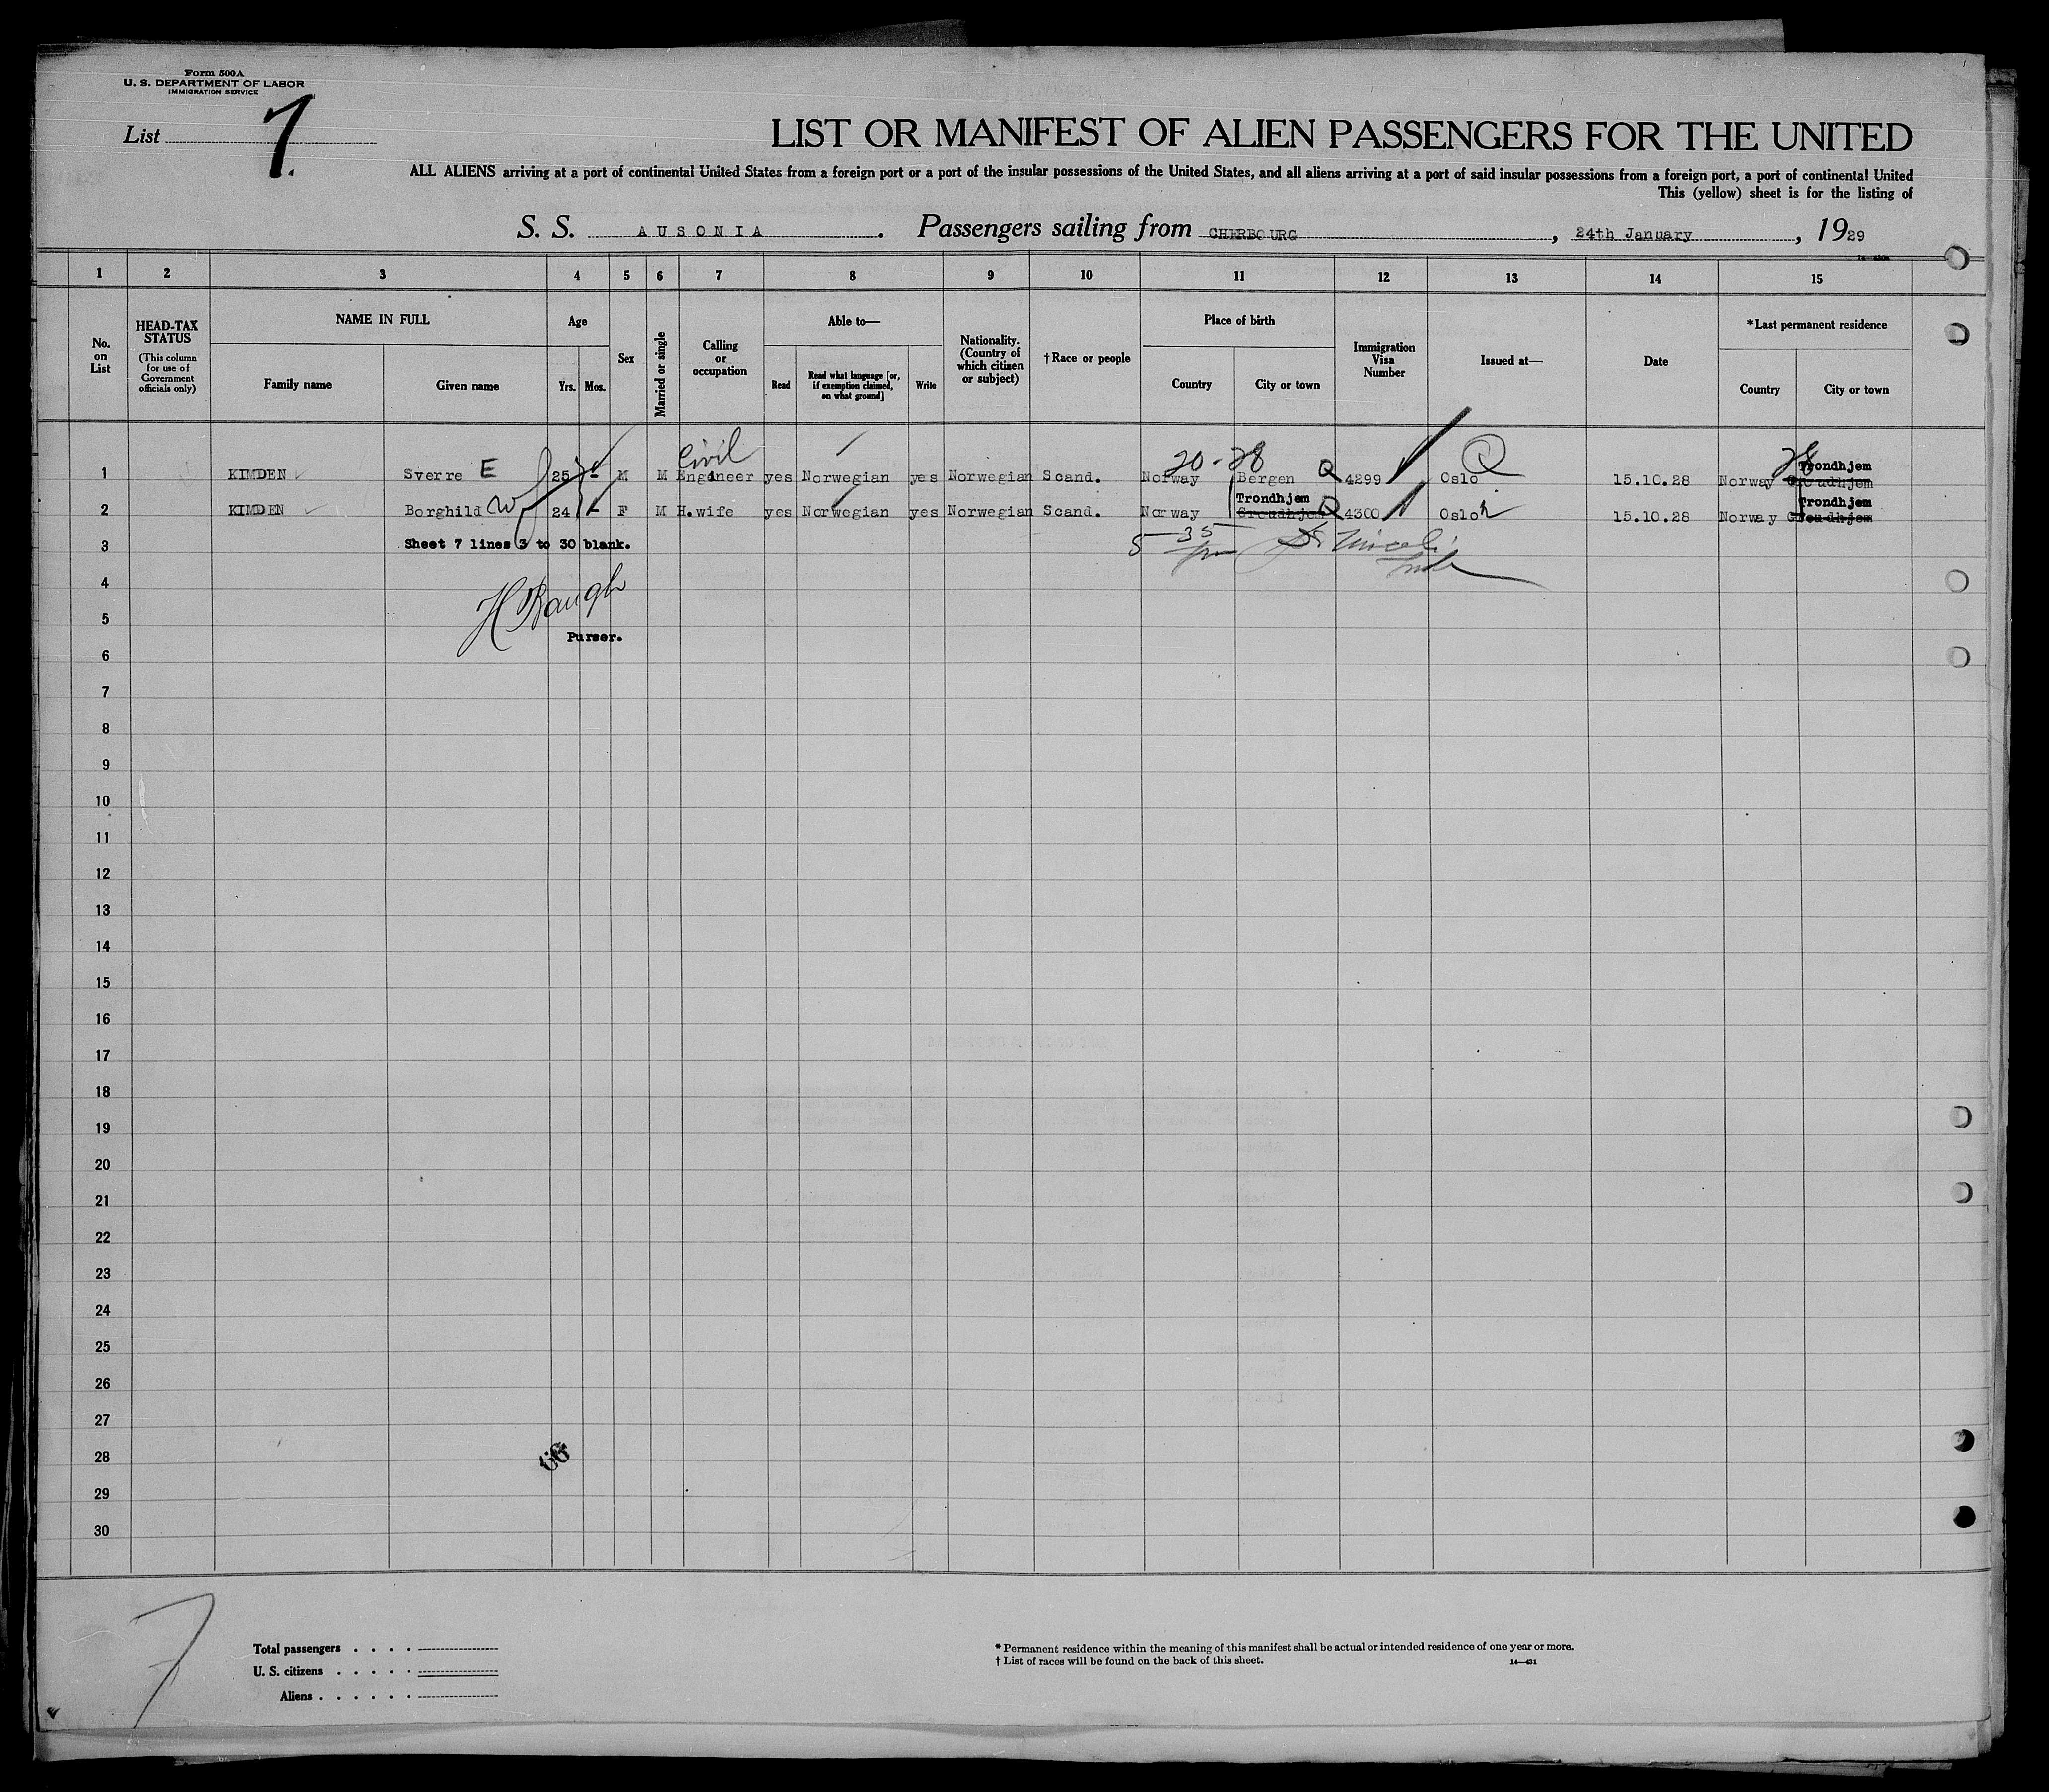 Form 500A
U. S. DEPARTMENT OF LABOR
IMMIGRATION SERVICE
List 7.
LIST OR MANIFEST OF ALIEN PASSENGERS FOR THE UNITED
ALL ALIENS arriving at a port of continental United States from a foreign port or a port of the insular possessions of the United States, and all aliens arriving at a port of said insular possessions from a foreign port, a port of continental United
This (yellow) sheet is for the listing of
S. S. AUSONIA. Passengers sailing from CHERBOURG, 24th January, 1929
1 2 3 4 5 6 7 8 9 10 11 12 13 14 15
No. on List
HEAD-TAX STATUS
(This column for use of Government officials only)
NAME IN FULL
Family name
Given name
Age
Yrs. Mos.
Sex
Married or single
Calling or occupation
Able to—
Read
Read what language [or, if exemption claimed, on what ground]
Write
Nationality. (Country of which citizen or subject)
†Race or people
Place of birth
Country
City or town
Immigration Visa Number
Issued at—
Date
*Last permanent residence
Country
City or town
Civil 20-28 Q 28 Trondhjem
1 KIMDEN Sverre E 25 M M Engineer yes Norwegian yes Norwegian Scand. Norway Bergen Q 4299 Oslo 15.10.28 Norway
Trondhjem Trondhjem
2 KIMDEN Borghild W 24 F M H.wife yes Norwegian yes Norwegian Scand. Norway Q 4300 Oslo 15.10.28 Norway
3 Sheet 7 lines 3 to 30 blank. 5 35
4
5 H Baugh
Purser.
6
7
8
9
10
11
12
13
14
15
16
17
18
19
20
21
22
23
24
25
26
27
28 66
29
30
7
Total passengers
U. S. citizens
Aliens
* Permanent residence within the meaning of this manifest shall be actual or intended residence of one year or more.
† List of races will be found on the back of this sheet. 14—431